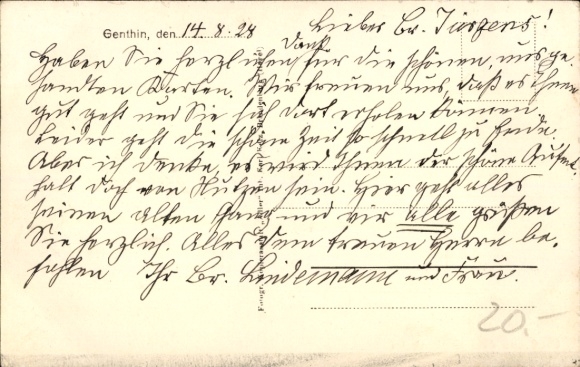 Genthin, den 14. 8. 28
Lieber Br. Jürgens!
Haben Sie herzlichen Dank für die schönen, uns ge-
sandten Karten. Wir freuen uns, daß es Ihnen
gut geht und Sie sich dort erholen können
Leider geht die schöne Zeit so schnell zu Ende.
Aber ich denke, es wird Ihnen der schöne Aufent-
halt doch von Nutzen sein. Hier geht alles
seinen alten Gang und wir alle grüßen
Sie herzlich. Alles dem treuen Herrn be-
fohlen Ihr Br. Lindemann und Frau.
20.-